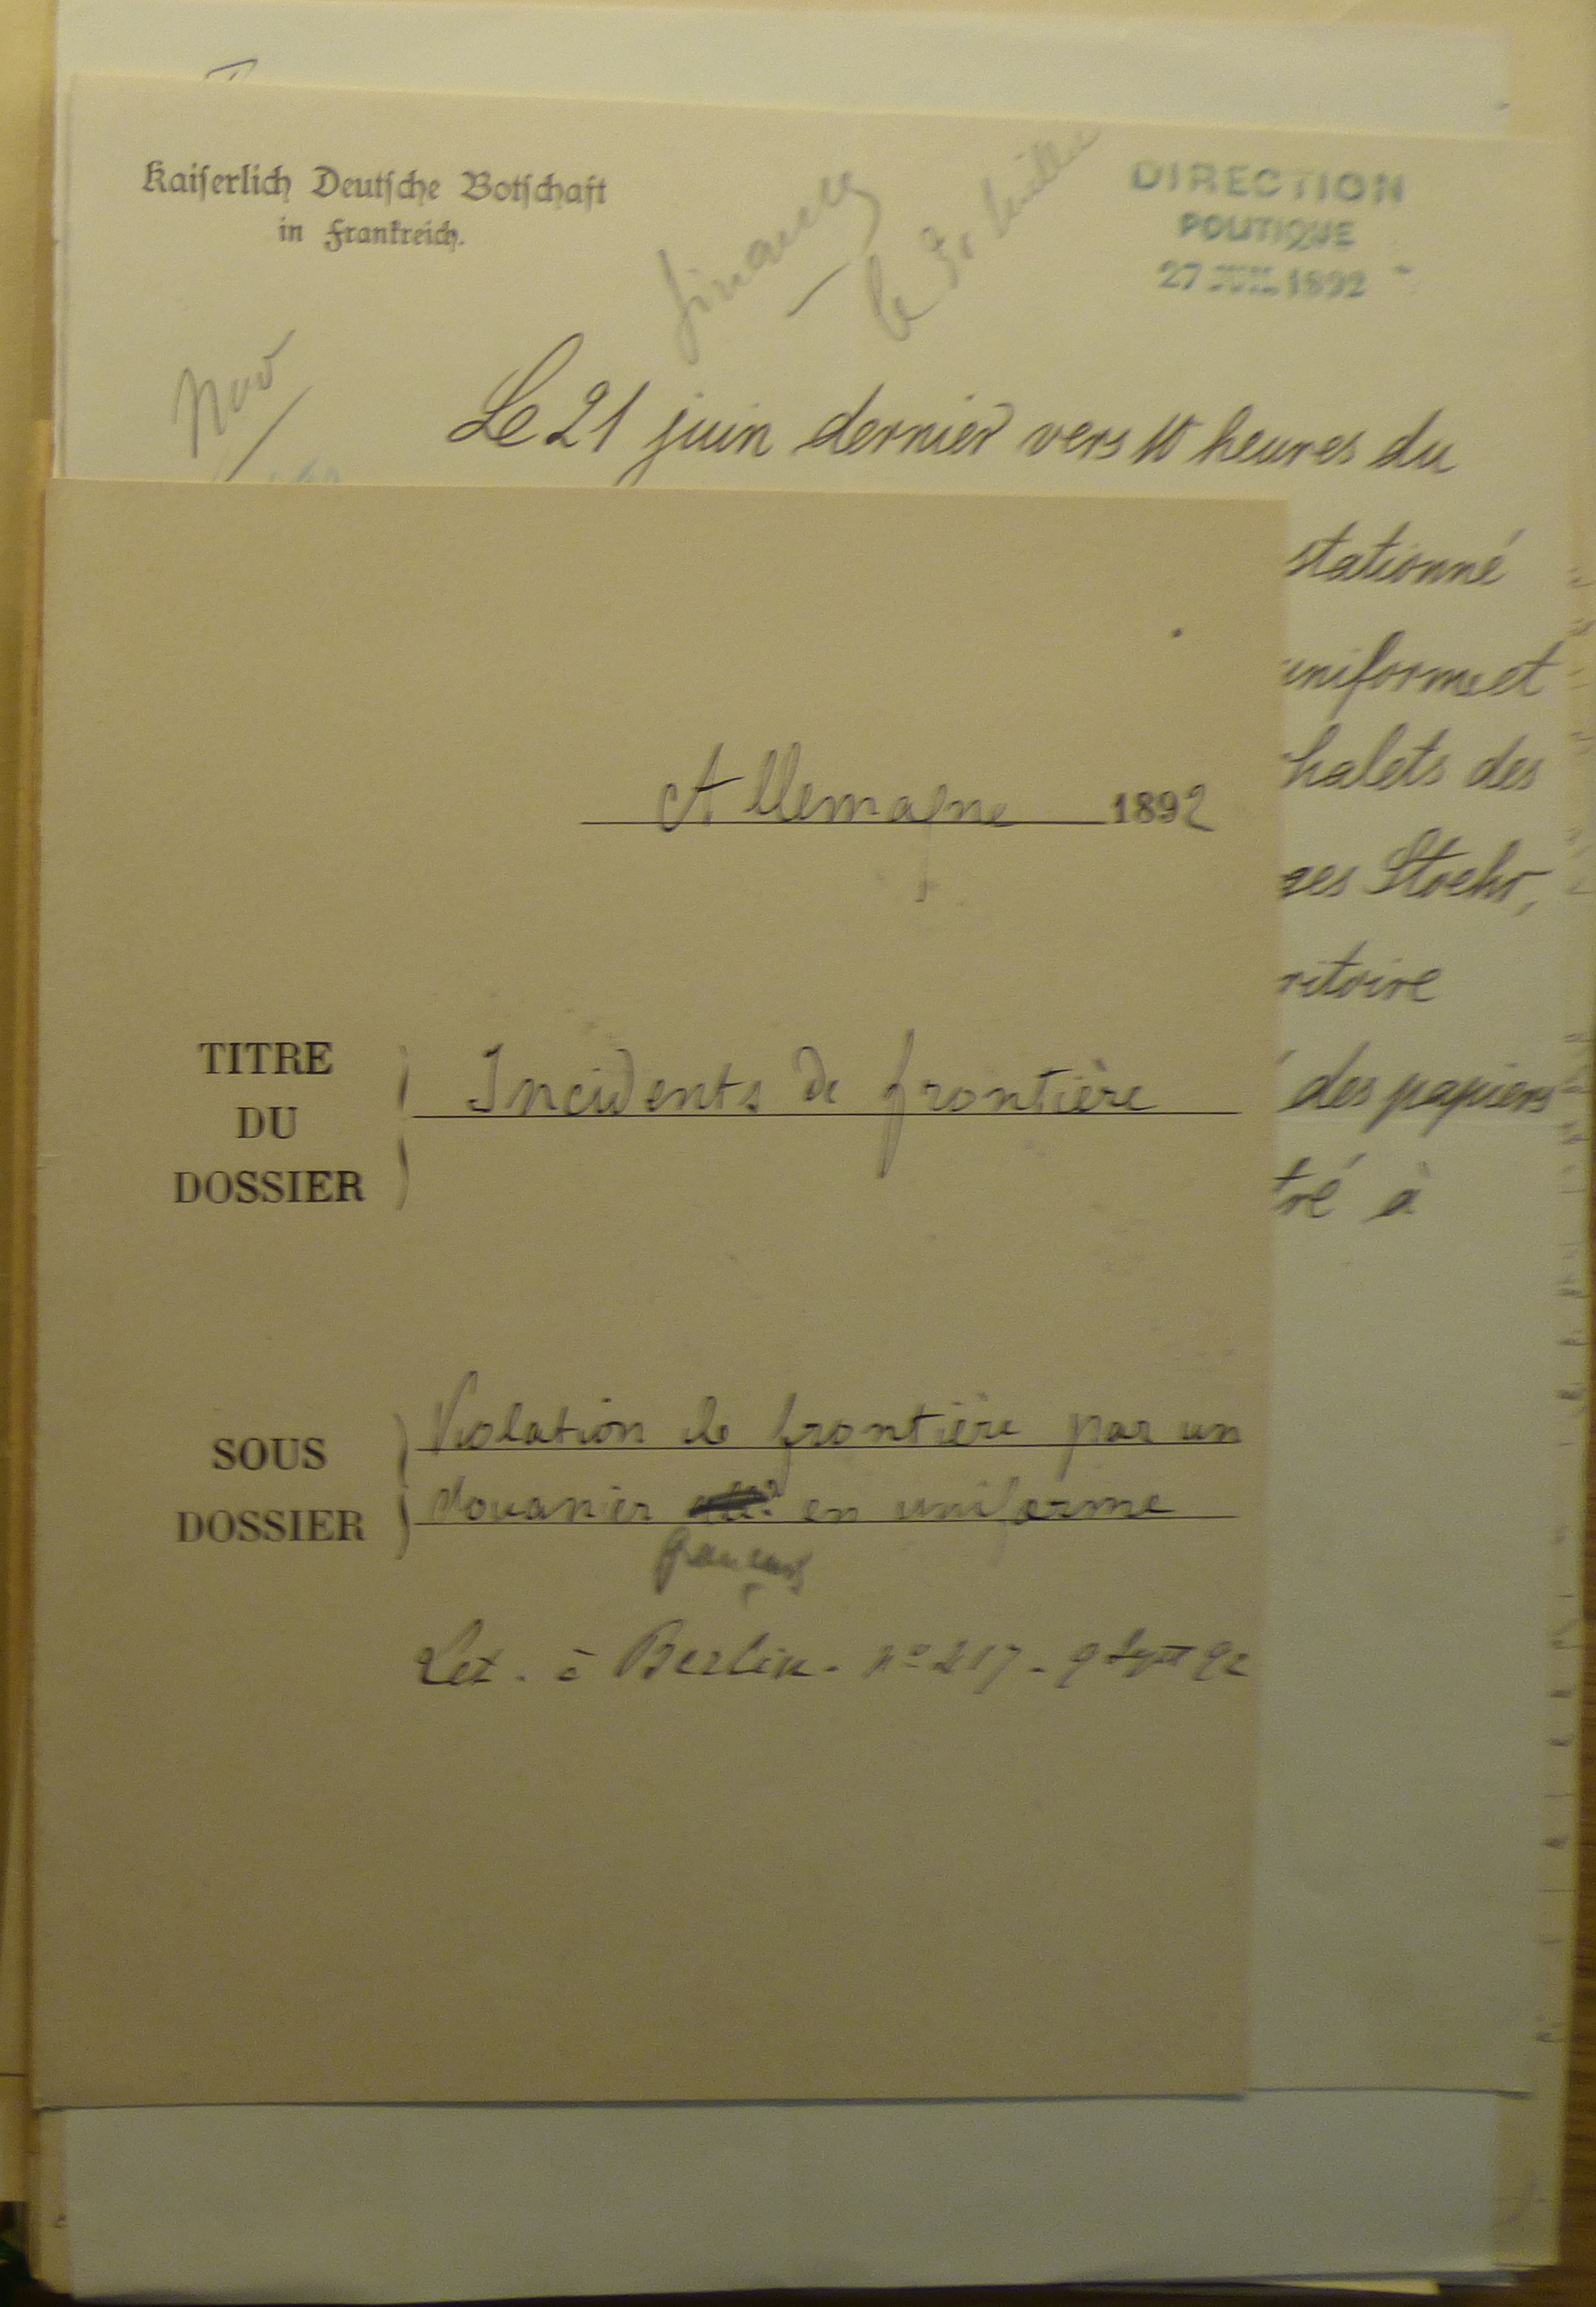 Kaiserlich Deutsche Botschaft
in Frankreich.
finances
le 30 Juillet
DIRECTION
POLITIQUE
27 JUIL 1892
Le 21 juin dernier vers 10 heures du
stationné
uniforme et
halets des
ges Stoehr,
ritoire
des papiers
tré à
Allemagne 1892
TITRE
DU
DOSSIER
Incidents de frontière
SOUS
DOSSIER
Violation de frontière par un
douanier en uniforme
français
Let. à Berlin - no 217 - 9 Sept 92